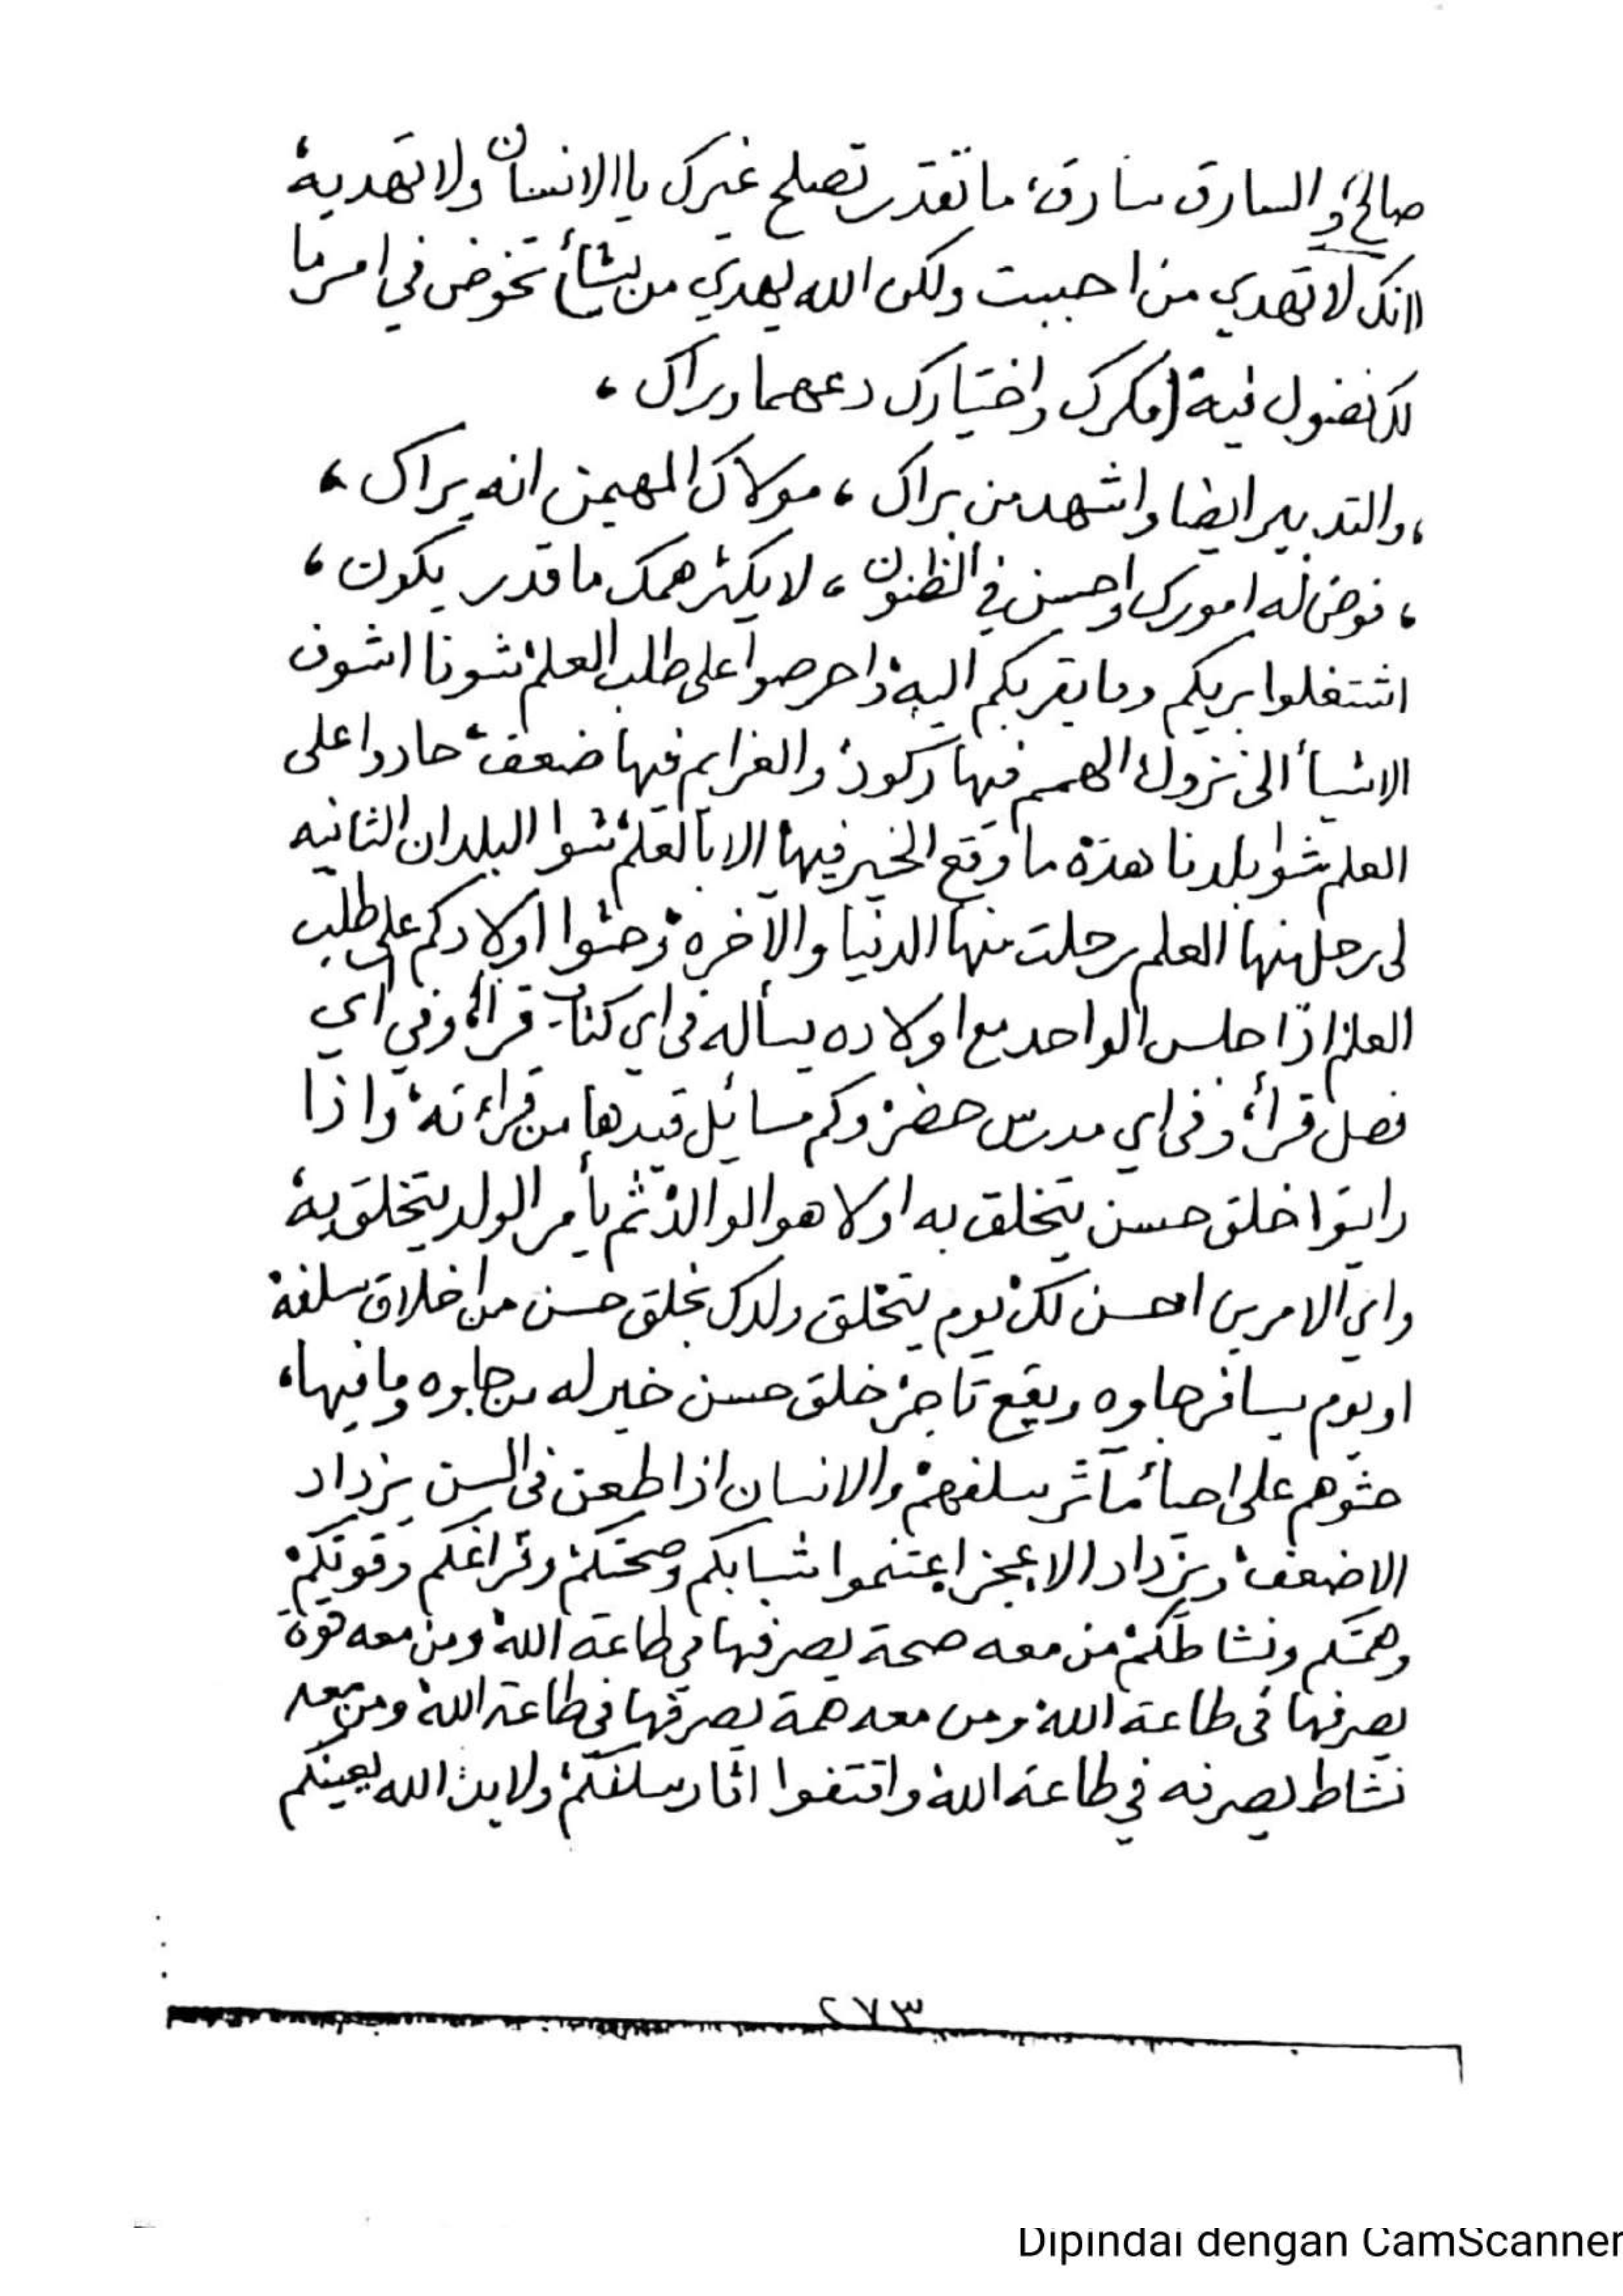 صالح، والسارق سارق، ما تقدر تصلح غيرك يا الانسان ولا تهديه،
((انك لا تهدي من احببت ولكن الله يهدي من يشأ)) تخوض في امر ما
لك فضول فيه (فكرك واختيارك دعهما وراك ،
،والتدبير ايضا واشهد من براك ، مولاك المهيمن انه يراك ،
، فوض له امورك واحسن في الظنون ، لا يكثر همك ما قدر يكون ،
اشتغلوا بربكم وما يقربكم اليه، واحرصوا على طلب العلم، شونا اشوف
الاشيأ الى نزول، الهمم فيها ركود، والعزايم فيها ضعف، حادوا على
العلم شوا بلدنا هذه ما وقع الخير فيها الا بالعلم، شوا البلدان الثانيه
لى رحل منها العلم رحلت منها الدنيا والآخره، وحثوا اولادكم على طلب
العلم، اذا جلس الواحد مع اولاده يسأله فى اي كتاب قرأ، وفي اي
فصل قرأ، وفى اي مدرس حضر، وكم مسائل قيدها من قراءته، واذا
رايتوا خلق حسن يتخلق به اولا هو الوالد، ثم يأمر الولد يتخلق به،
واي الامرين احسن لك، يوم يتخلق ولدك بخلق حسن من اخلاق سلفه،
او يوم يسافر جاوه ويقع تاجر، خلق حسن خير له من جاوه وما فيها،
حثوهم على احيأ مآثر سلفهم، والانسان اذا طعن فى السن يزداد
الا ضعف، ويزداد الا عجز، اغتنموا شبابكم وصحتكم، وفراغكم وقوتكم،
وهمتكم ونشاطكم، من معه صحة يصرفها في طاعة الله، ومن معه قوة
يصرفها فى طاعة الله، ومن معه همة يصرفها فى طاعة الله، ومن معه
نشاط يصرفه في طاعة الله، واقتفوا آثار سلفكم، ولابد، الله يعينكم
٢٧٣
Dipindai dengan CamScanner